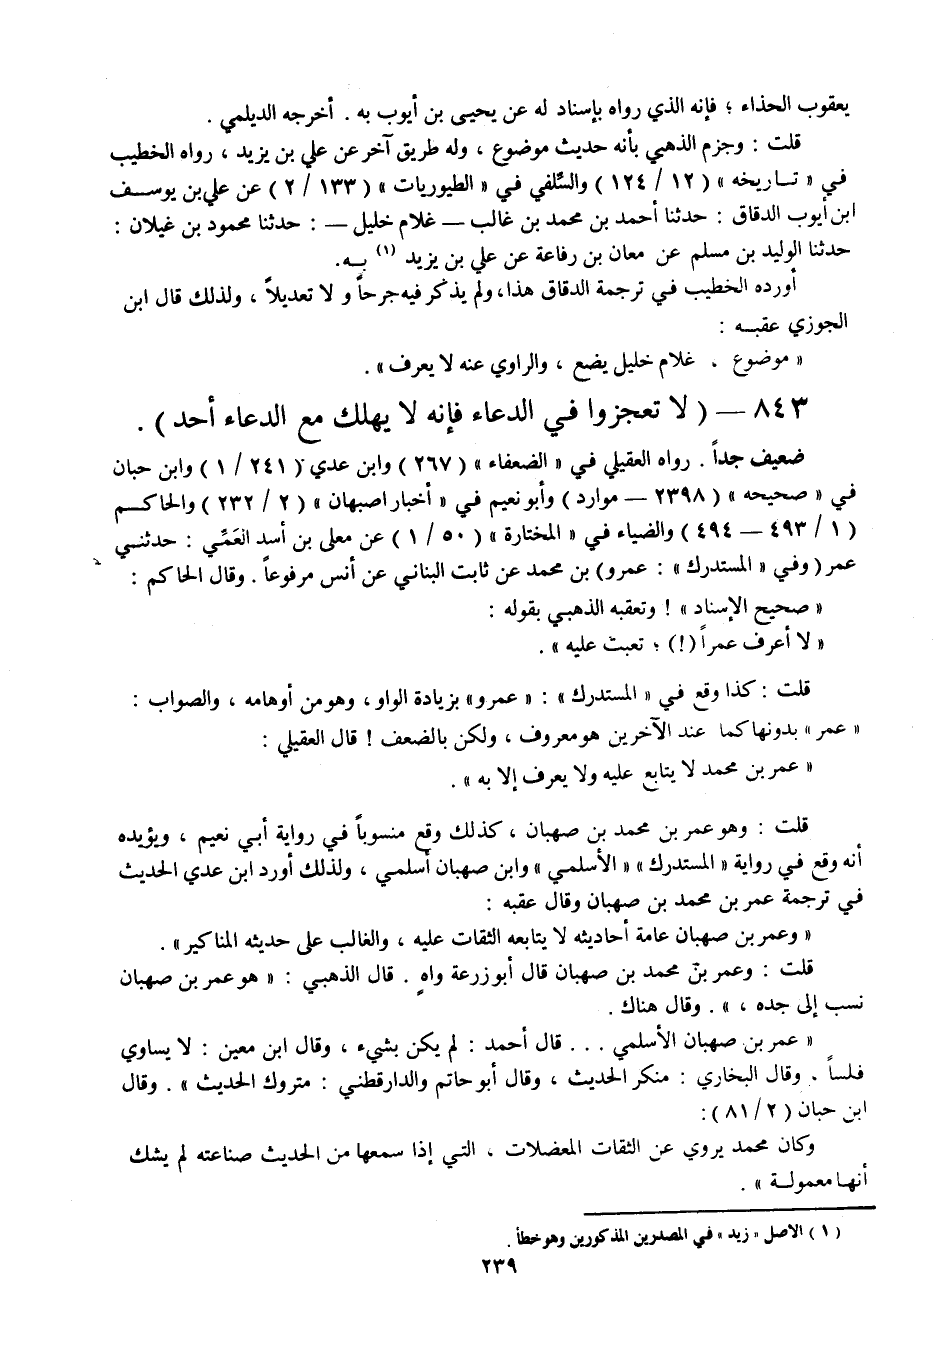 يعقوب الحذاء ؛ فإنه الذي رواه بإسناد له عن يحيى بن أيوب به . أخرجه الديلمي .
قلت : وجزم الذهبي بأنه حديث موضوع ، وله طريق آخر عن علي بن يزيد ، رواه الخطيب
في « تاريخه » ( ١٢ / ١٢٤ ) والسِّلفي في « الطيوريات » ( ١٣٣ / ٢ ) عن علي بن يوسف
ابن أيوب الدقاق : حدثنا أحمد بن محمد بن غالب — غلام خليل — : حدثنا محمود بن غيلان :
حدثنا الوليد بن مسلم عن معان بن رفاعة عن علي بن يزيد (١) به.
أورده الخطيب في ترجمة الدقاق هذا، ولم يذكر فيه جرحاً و لا تعديلاً ، ولذلك قال ابن
الجوزي عقبه :
« موضوع . غلام خليل يضع ، والراوي عنه لا يعرف » .
٨٤٣ — ( لا تعجزوا في الدعاء فإنه لا يهلك مع الدعاء أحد ) .
ضعيف جداً . رواه العقيلي في « الضعفاء » ( ٢٦٧ ) وابن عدي ( ٢٤١ / ١ ) وابن حبان
في « صحيحه » ( ٢٣٩٨ — موارد ) وأبو نعيم في « أخبار اصبهان » ( ٢ / ٢٣٢ ) والحاكم
( ١ / ٤٩٣ — ٤٩٤ ) والضياء في « المختارة » ( ٥٠ / ١ ) عن معلى بن أسد العَمِّي : حدثني
عمر ( وفي « المستدرك » : عمرو) بن محمد عن ثابت البناني عن أنس مرفوعاً . وقال الحاكم :
« صحيح الإسناد » ! وتعقبه الذهبي بقوله :
« لا أعرف عمراً (!) ؛ تعبت عليه » .
قلت : كذا وقع في « المستدرك » : « عمرو» بزيادة الواو ، وهو من أوهامه ، والصواب :
« عمر » بدونها كما عند الآخرين هو معروف ، ولكن بالضعف ! قال العقيلي :
« عمر بن محمد لا يتابع عليه ولا يعرف إلا به » .
قلت : وهو عمر بن محمد بن صهبان ، كذلك وقع منسوباً في رواية أبي نعيم ، ويؤيده
أنه وقع في رواية « المستدرك » « الأسلمي » وابن صهبان أسلمي ، ولذلك أورد ابن عدي الحديث
في ترجمة عمر بن محمد بن صهبان وقال عقبه :
« وعمر بن صهبان عامة أحاديثه لا يتابعه الثقات عليه ، والغالب على حديثه المناكير » .
قلت : وعمر بن محمد بن صهبان قال أبو زرعة واهٍ . قال الذهبي : « هو عمر بن صهبان
نسب إلى جده ، » . وقال هناك .
« عمر بن صهبان الأسلمي . . . قال أحمد : لم يكن بشيء ، وقال ابن معين : لا يساوي
فلساً . وقال البخاري : منكر الحديث ، وقال أبو حاتم والدارقطني : متروك الحديث » . وقال
ابن حبان ( ٢ / ٨١ ):
وكان محمد يروي عن الثقات المعضلات ، التي إذا سمعها من الحديث صناعته لم يشك
أنها معمولة » .
( ١ ) الاصل « زيد » في المصدرين المذكورين وهو خطأ .
٢٣٩